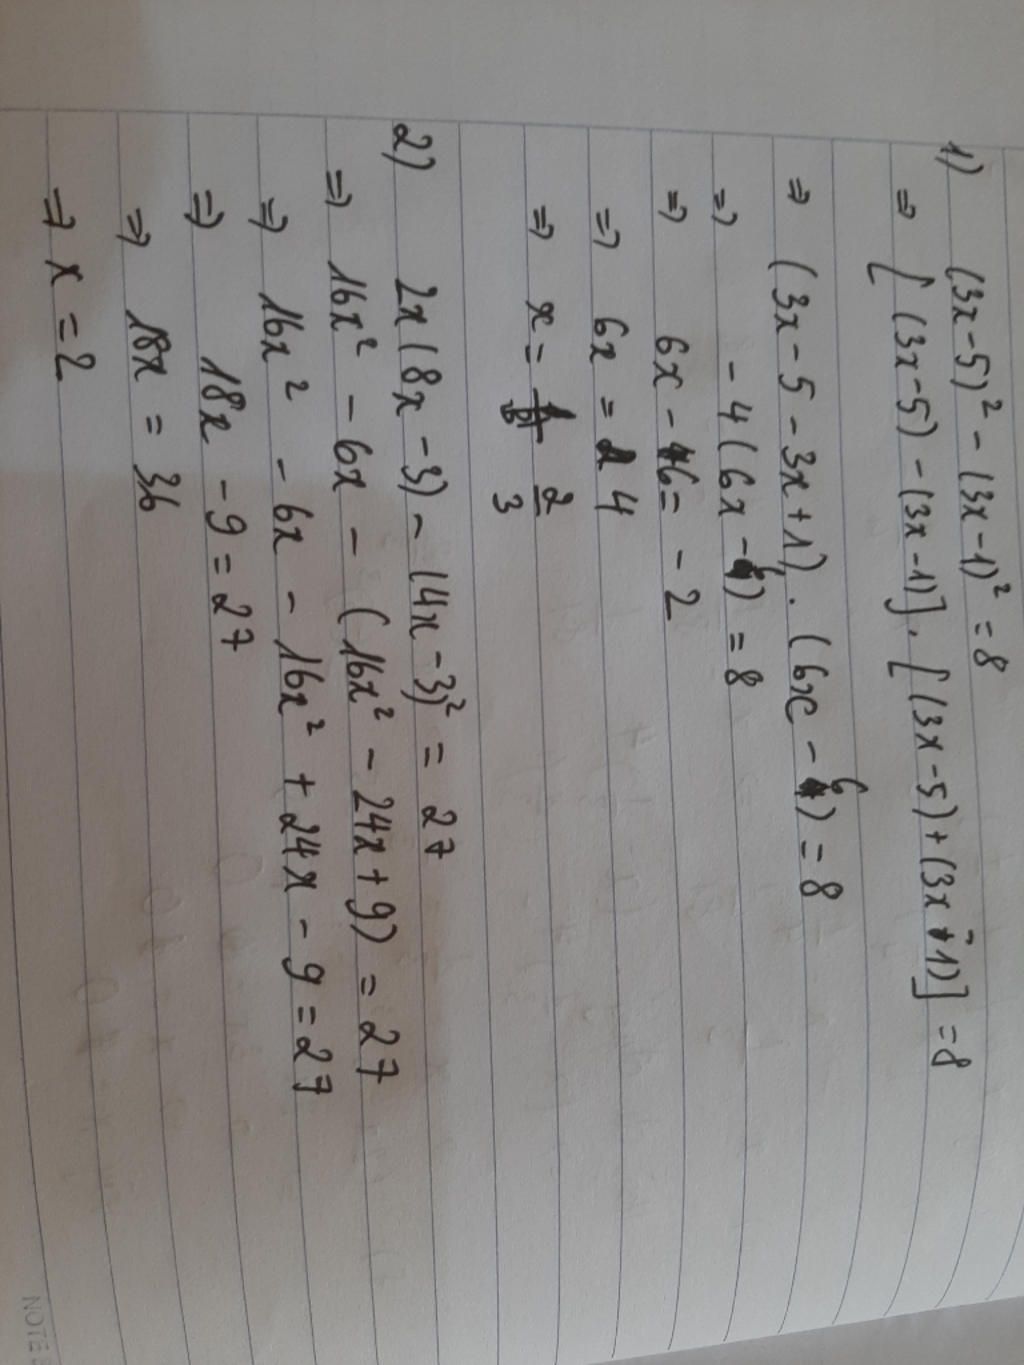 1) (3x-5)² - (3x-1)² = 8
⇒ [(3x-5) - (3x-1)] . [(3x-5) + (3x-1)] = 8
⇒ (3x - 5 - 3x + 1) . (6x - 6) = 8
⇒ - 4 (6x - 6) = 8
⇒ 6x - 6 = - 2
⇒ 6x = 4
⇒ x = 2/3
2) 2x (8x - 3) - (4x - 3)² = 27
⇒ 16x² - 6x - (16x² - 24x + 9) = 27
⇒ 16x² - 6x - 16x² + 24x - 9 = 27
⇒ 18x - 9 = 27
⇒ 18x = 36
⇒ x = 2
NOTE